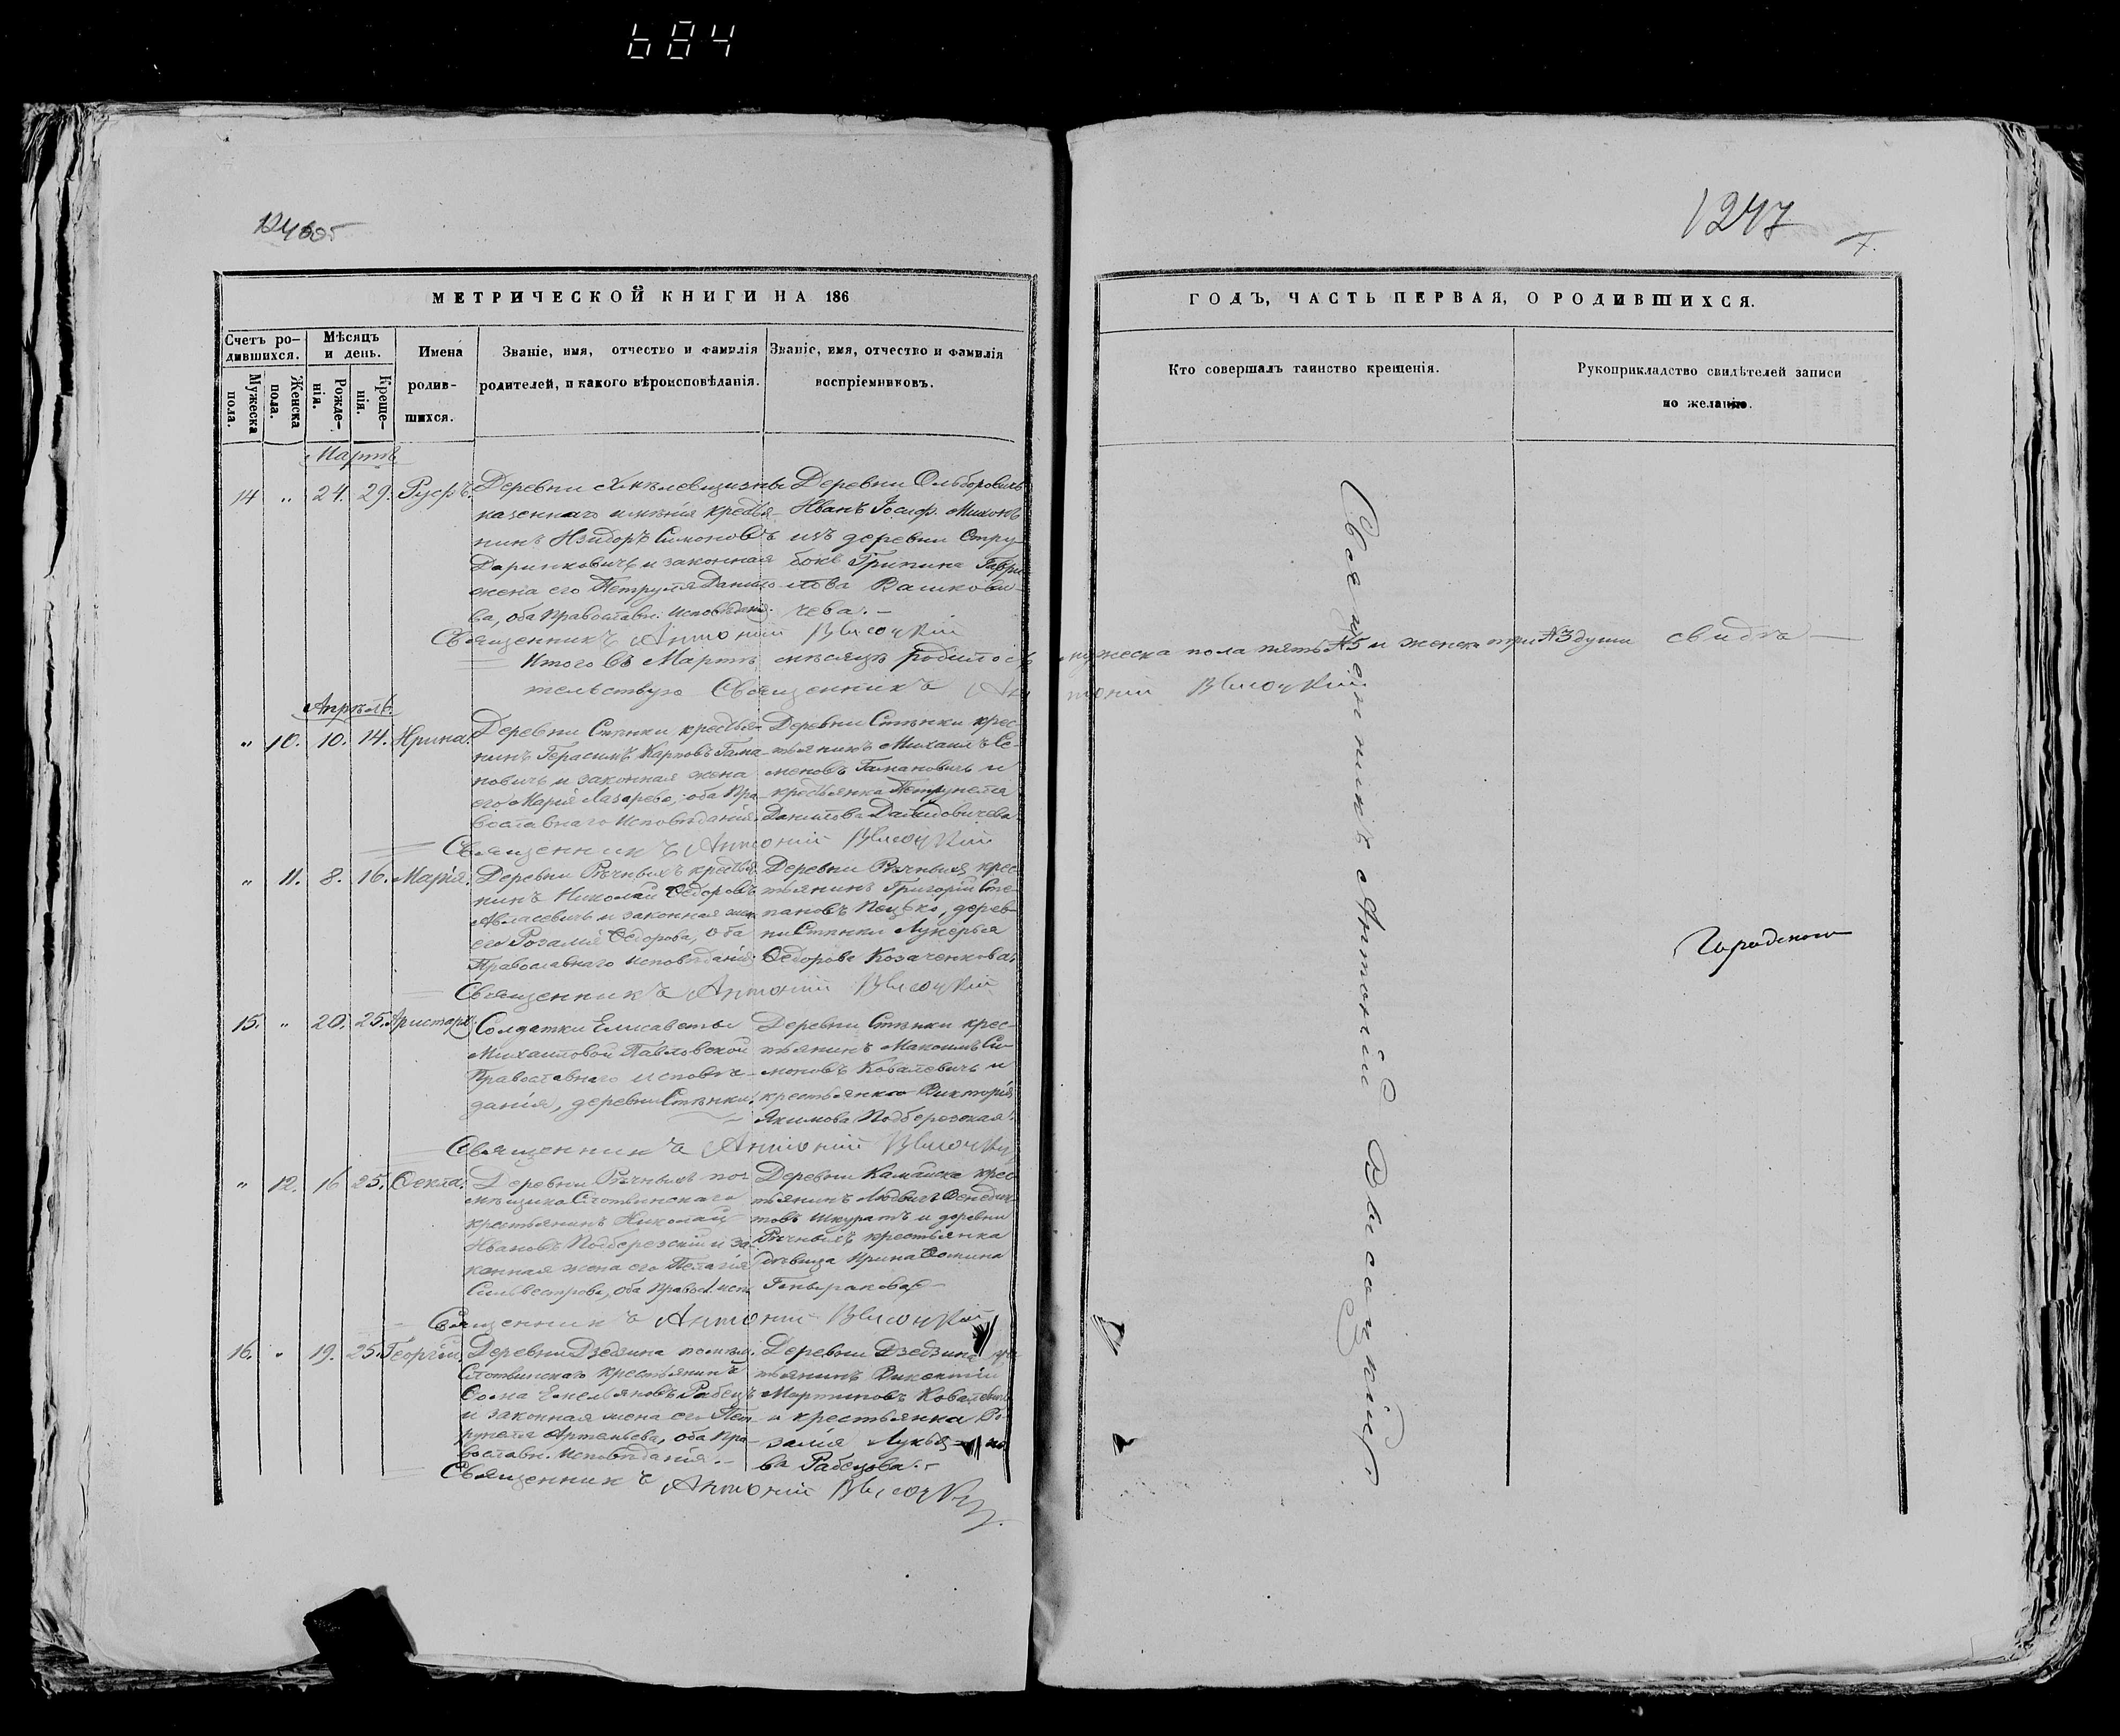 684
1247
МЕТРИЧЕСКОЙ КНИГИ НА 186
ГОДЪ, ЧАСТЬ ПЕРВАЯ, О РОДИВШИХСЯ.
Счетъ ро-
дившихся.
Мужеска
пола.
Женска
пола.
Мѣсяцъ
и день.
Рожде-
нія.
Креще-
нія.
Имена
родив-
шихся.
Званіе, имя, отчество и фамилія
родителей, и какого вѣроисповѣданія.
Званіе, имя, отчество и фамилія
воспріемниковъ.
Кто совершалъ таинство крещенія.
Рукоприкладство свидѣтелей записи
по желанію.
Мартъ
14 „ 24. 29. Руфъ.
Деревни
казеннаго имѣнія кресть-
нинъ Изидоръ Симоновъ
и законная
жена его Петруля Данило-
ва, оба православн. исповѣданія.
Деревни Ольборовичъ
Иванъ Іосиф.
изъ деревни Стру-
боке Грипина Гаври-
лова Вашкови-
чева.
Священникъ Антоній Высоцкій
Итого въ Мартѣ мѣсяцѣ родилось мужеска пола пять №5 и женска три №3 души свидѣ-
тельствую Священникъ Антоній Высоцкій
Апрѣль.
„ 10. 10. 14. Ирина.
Деревни Стѣнки крестья-
нинъ Герасимъ Карповъ Гама-
новичъ и законная жена
его Марія Лазарева, оба Пра-
вославнаго исповѣданія.
Деревни Стѣнки крес-
тьянинъ Михаилъ Се-
меновъ Гамановичъ и
крестьянка Петрунеля
Данилова Давидовичева
Священникъ Антоній Высоцкій
„ 11. 8. 16. Марія.
Деревни Рѣчныхъ крестья-
нинъ Николай Ѳедоровъ
Авласевичъ и законная жена
его Розалія Ѳедорова, оба
Православнаго исповѣданія
Деревни Рѣчныхъ крес-
тьянинъ Григорій Сте-
пановъ Пецько, дерев-
ни Стѣнки Лукерья
Ѳедорова Козаченкова.
Священникъ Антоній Высоцкій
15. „ 20. 25. Аристархъ
Солдатки Елисаветы
Михаиловой Павловской
Православнаго исповѣ-
данія, деревни Стѣнки.
Деревни Стѣнки крес-
тьянинъ Максимъ Си-
моновъ Ковалевичъ и
крестьянка Викторія
Якимова Подберезская.
Священникъ Антоній Высоцкій
„ 12. 16 25. Ѳекла.
Деревни Рѣчныхъ по-
мѣщика Слотвинскаго
крестьянинъ Николай
Ивановъ Подберезскій и за-
конная жена его Пелагія
Сильвестрова, оба правосл. исп.
Деревни Камайска крес-
тьянинъ Людвигъ Венедик-
товъ Шкуратъ и деревни
Рѣчныхъ крестьянка
дѣвица Ирина Ѳомина
Священникъ Антоній Высоцкій
16. „ 19. 25. Георгій.
Деревни Дзедзина помѣщ.
Слотвинскаго крестьянинъ
Ѳома Емельяновъ Рабецъ
и законная жена его Пет-
рунеля Артемьева, оба пра-
вославн. исповѣданія.
Деревни Дзедзина
тьянинъ Викентій
Мартиновъ Ковалевичъ
и крестьянка Ро-
залія
ва Рабецова.
Священникъ Антоній Высоцкій
Священникъ Антоній Высоцкій